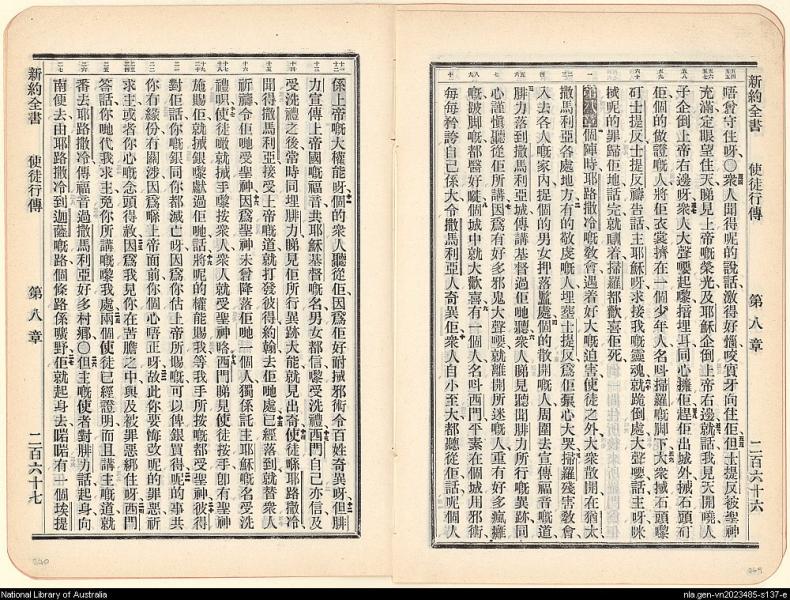 新約全書 使徒行傳 第八章 二百六十六
唔曾守住呀〇衆人聞得呢的說話激得好惱咬實牙向住佢但士提反被聖神
充滿定眼望住天睇見上帝嘅榮光及耶穌企倒上帝右邊就話我見天開曉人
子企倒上帝右邊呀衆人大聲嗌起嚟揞埋耳同心擁佢趕佢出城外掟石頭打
佢個的做證嘅人將佢衣裳擠在一個少年人名叫掃羅嘅脚下大衆掟石頭嚟
打士提反士提反禱告話主耶穌呀求接我嘅靈魂就跪倒處大聲嗌話主呀咪
將呢的罪歸佢地話完就瞓着掃羅都歡喜佢死
第八章 個陣時耶路撒冷嘅敎會遇着好大嘅迫害使徒之外大衆散開在猶太
撒馬利亞各處地方有的敬虔嘅人埋塟士提反爲佢㮟心大哭掃羅殘害敎會
入去各人嘅家內捉個的男女押落監處個的散開嘅人周圍去宣傳福音嘅道
腓力落到撒馬利亞城傳講基督過佢哋聽衆人睇見聽聞腓力所行嘅異跡同
心謹愼聽從佢所講因爲有好多邪鬼大聲嗌就離開所迷嘅人重有好多瘋癱
嘅跛脚嘅都醫好噲個城中就大歡喜有一個人名叫西門平素在個城用邪術
每每矜誇自己係大令撒馬利亞人奇異佢衆人自小至大都聽從佢話呢個人
係上帝嘅大權能呀個的衆人聽從佢因爲佢好耐掟邪術令百姓奇異呀但腓
力宣傳上帝國嘅福音共耶穌基督嘅名男女都信嚟受洗禮西門自己亦信及
受洗禮之後常時同埋腓力睇見佢所行異跡大能就見出奇使徒喺耶路撒冷
聞得撒馬利亞接受上帝嘅道就打發彼得約翰去佢哋處已經落到就替衆人
祈禱令佢哋受聖神因爲聖神未曾降落佢哋一個人獨係託主耶穌嘅名受洗
禮唄使徒𠻺就掟手嚟按衆人衆人就受聖神咯西門睇見使徒按手卽有聖神
施賜佢就掟銀嚟獻過佢哋話將呢的權能賜我等我手所按嘅都受聖神彼得
對佢話你嘅銀同你都滅亡呀因爲你估上帝所賜嘅可以俾銀買得呢的事共
你冇緣份冇關涉因爲喺上帝面前你個心唔正呀故此你要悔改呢的罪惡祈
求主或者你心嘅念頭得赦因爲我見你在苦膽之中與及被罪惡綁住呀西門
答話你哋代我求主免你所講嘅嚟我處兩個使徒已經證明而且講主嘅道就
番去耶路撒冷傳福音過撒馬利亞好多村鄉〇但主嘅使者對腓力話起身向
南便去由耶路撒冷到迦薩嘅路個條路係曠野佢就起身去啱啱有一個埃提
新約全書 使徒行傳 第八章 二百六十七
National Library of Australia
nla.gen-vn2023485-s137-e